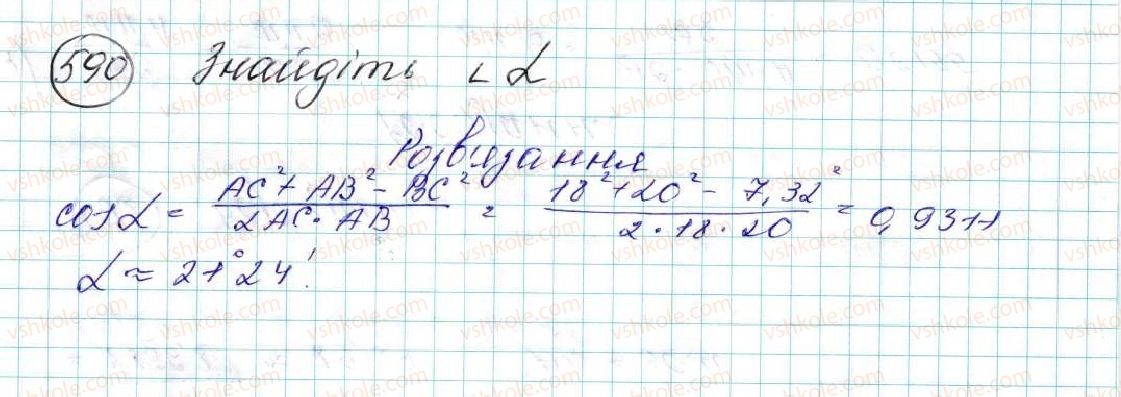 590 Знайдіть ∠ α
Розв'язання
cos α = (AC² + AB² - BC²) / (2AC · AB) = (18² + 20² - 7,32²) / (2 · 18 · 20) = 0,9311
α ≈ 21°24'.